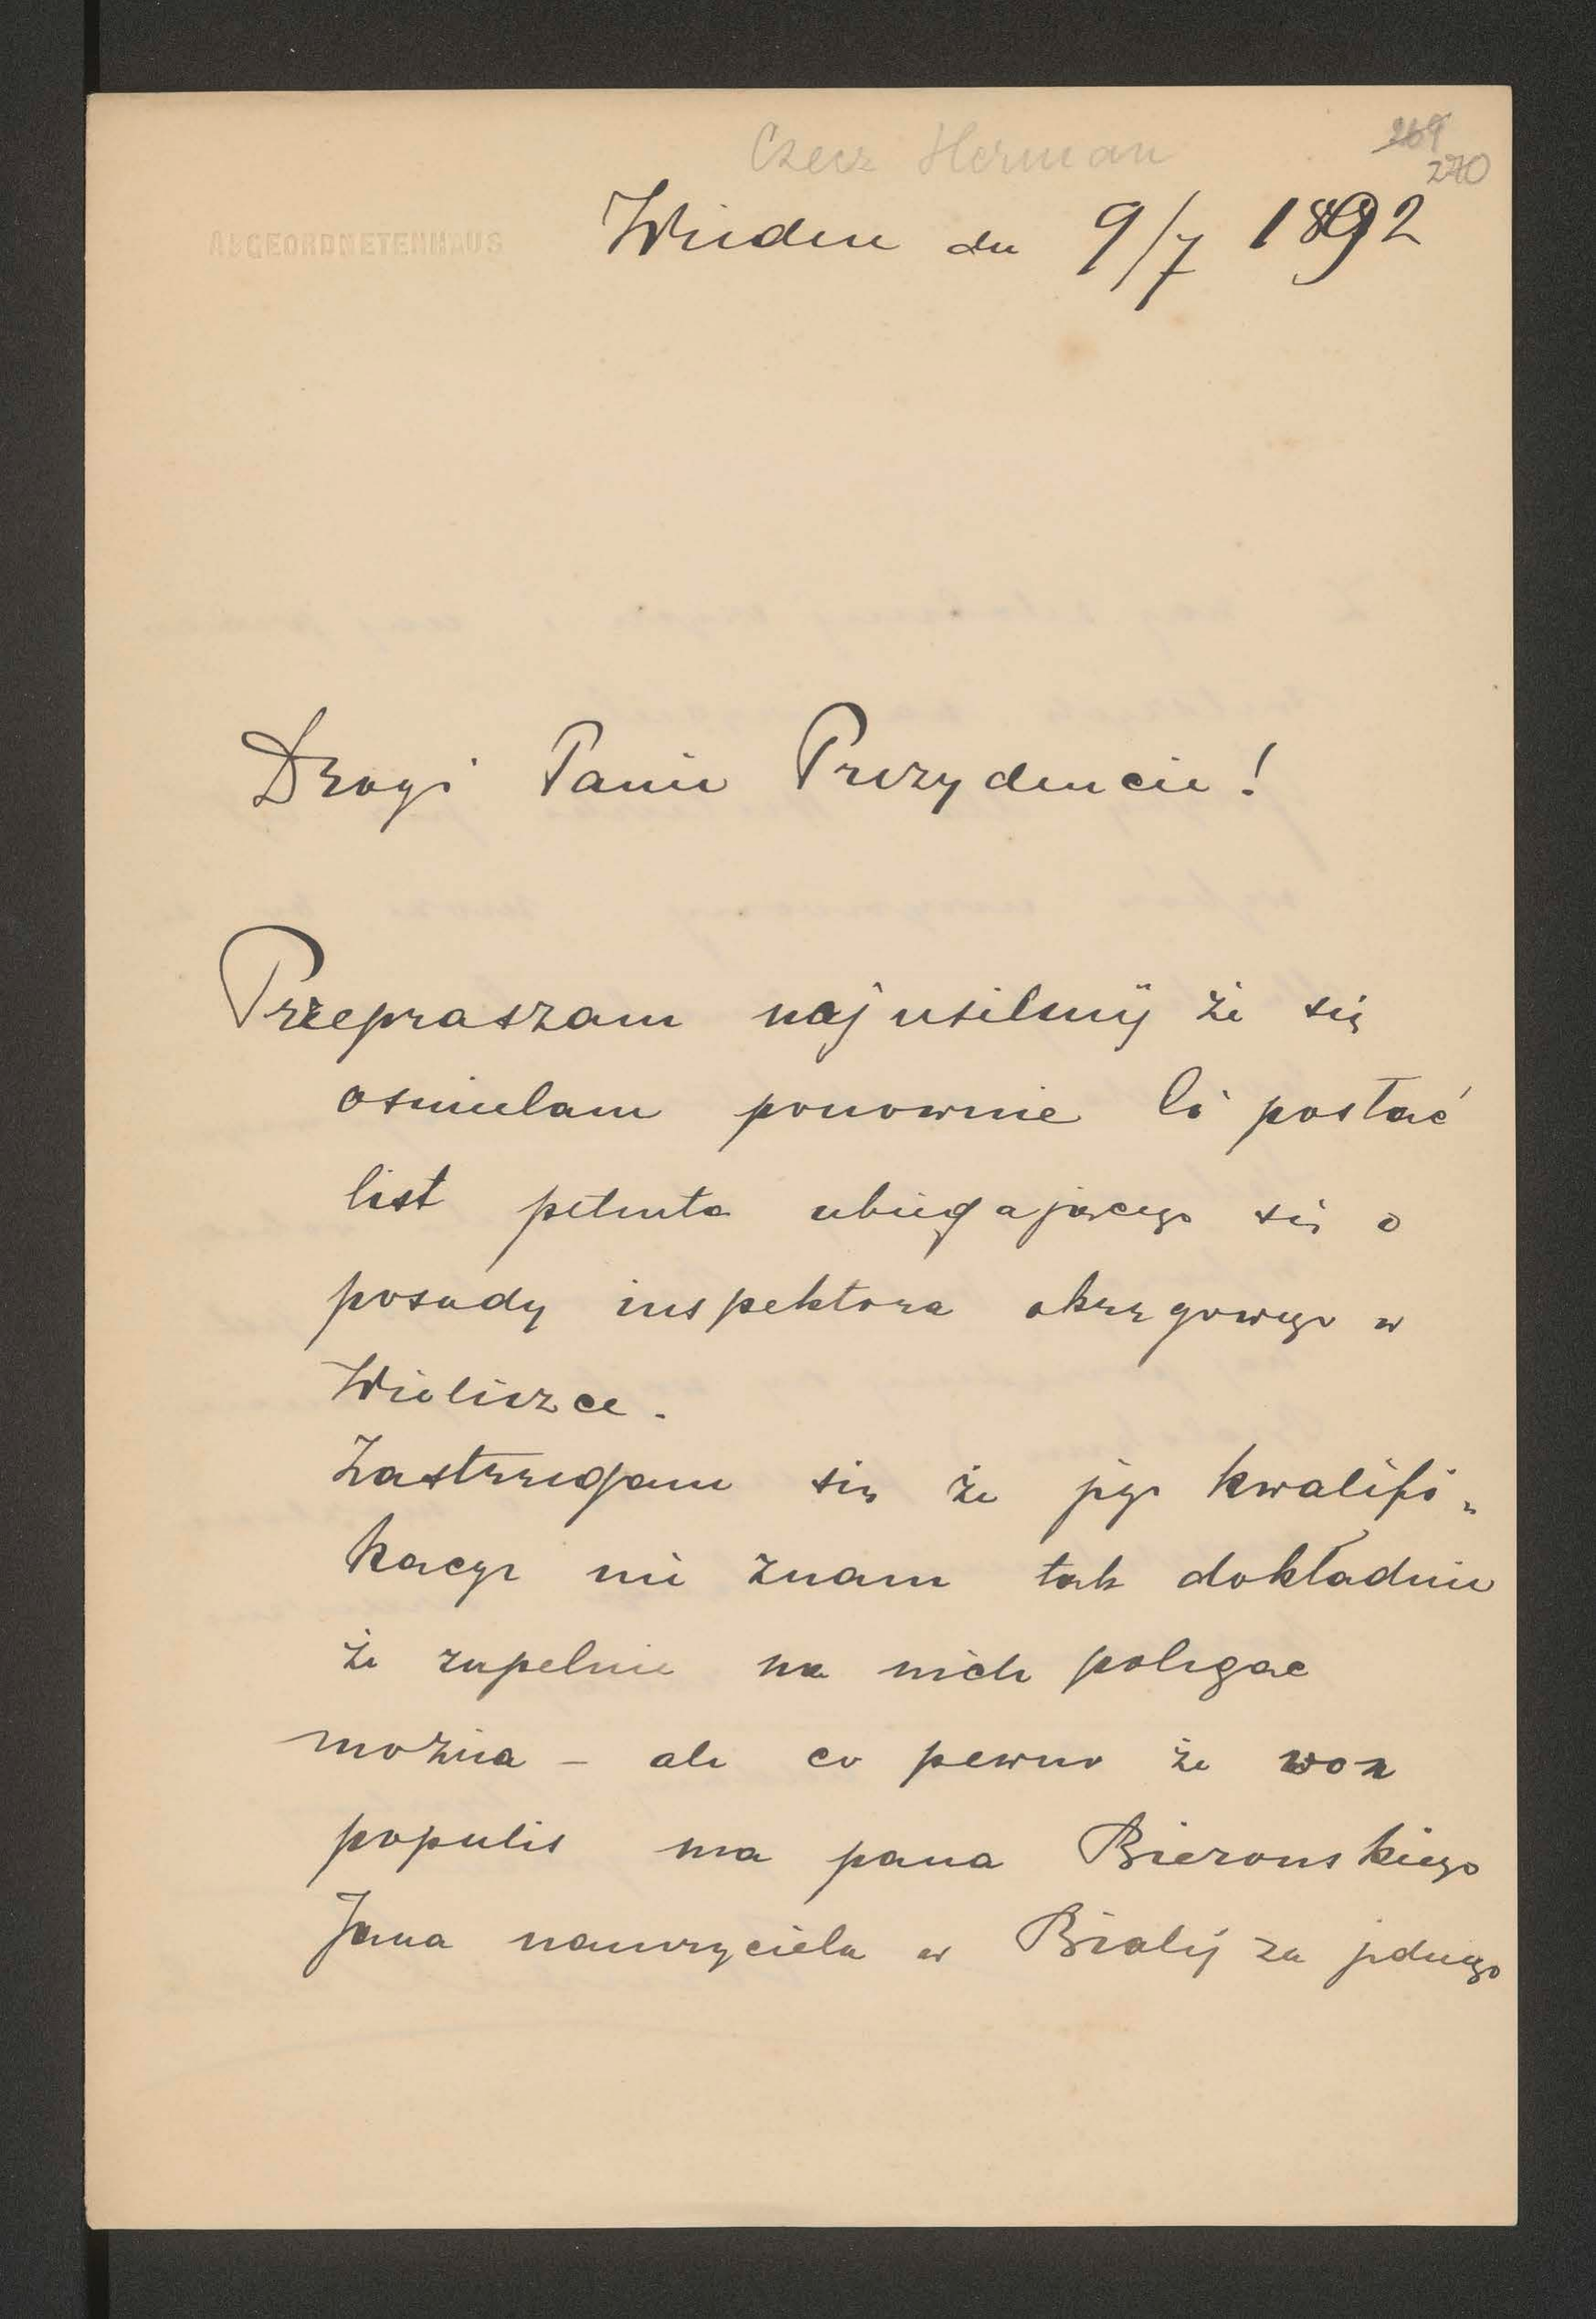 Czecz Herman
269
270
ABGEORDNETENHAUS
Wieden dn 9/7 1892
Drogi Panie Prezydencie!
Przepraszam najusilniej że się
osmielam ponownie Ci posłać
list petenta ubiegającego się o
posady inspektora okręgowego w
Wieliczce.
Zastrzegam się że jego kwalifi„
kacye nie znam tak dokładnie
że zupelnie na nich polegac
można – ale co pewno że wox
populis ma pana Bieronskiego
Jana nauczyciela w Bialej za jednego